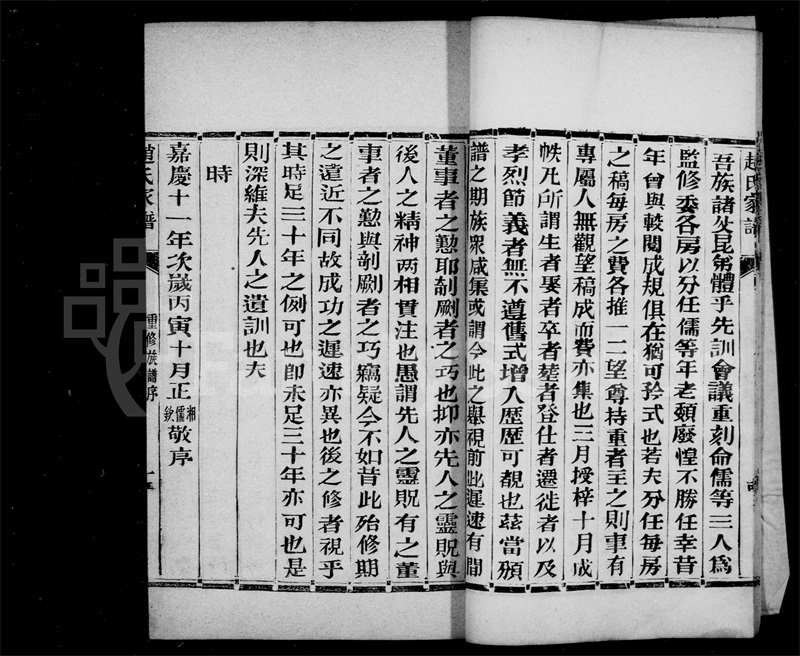 趙氏家譜
吾族諸父昆弟體乎先訓會議重刻命儒等三人爲
監修委各房以分任儒等年老頹廢惶不勝任幸昔
年曾與較閱成規俱在猶可矜式也若夫分任每房
之稿每房之費各推一二望尊持重者主之則事有
專屬人無觀望稿成而費亦集也三月授梓十月成
帙凡所謂生者娶者卒者塟者登仕者遷徙者以及
孝烈節義者無不遵舊式增入歷歷可覩也茲當頒
譜之期族衆咸集或謂今此之舉視前此遲速有間
董事者之懃耶剞劂者之巧也抑亦先人之靈貺與
後人之精神两相貫注也愚謂先人之靈貺有之董
事者之懃與剞劂者之巧竊疑今不如昔此殆修期
之遠近不同故成功之遲速亦異也後之修者視乎
其時足三十年之例可也卽未足三十年亦可也是
則深維夫先人之遺訓也夫
時
嘉慶十一年次歲丙寅十月正湘儒欽敬序
趙氏家譜
重修族譜序
十五